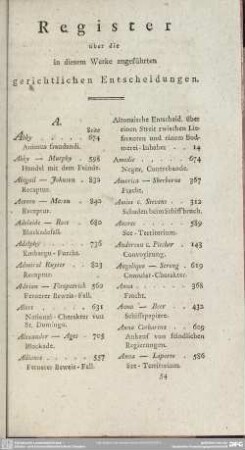 Register
über die
in diesem Werke angeführten
gerichtlichen Entscheidungen.
A.
Seite
Abby . . . . 674
Animus fraudandi.
Abby — Murphy . 598
Handel mit dem Feinde.
Abigail — Johnson . 832
Recaptur.
Aaron — Moran . 840
Recaptur.
Adelaide — Rose . 680
Blockadefall.
Adelphy . . . 736
Embargo-Fracht.
Admiral Rayner . 823
Recaptur.
Adrian — Fitzpatrick 560
Fernerer Beweis-Fall.
Aines . . . . 631
National-Charakter von
St. Domingo.
Alexander — Ages . 705
Blockade.
Alliance . . . 557
Fernerer Beweis-Fall.
Altonaische Entscheid. über
einen Streit zwischen Lie-
feranten und einem Bod-
merei-Inhaber . . 14
Amedie . . . . 674
Neger, Contrebande.
America — Sherborne 367
Fracht.
Amice v. Stevens . 312
Schaden beim Schiffbruch.
Anares . . . . 589
See-Territorium.
Anderson v. Pitcher . 143
Convoyirung.
Angelique — Strong . 619
Consulat-Charakter.
Anna . . . . 368
Fracht.
Anna — Boer . . 432
Schiffspapiere.
Anna Catharina . . 609
Ankauf von feindlichen
Regierungen.
Anna — Laporte . 586
See-Territorium.
54